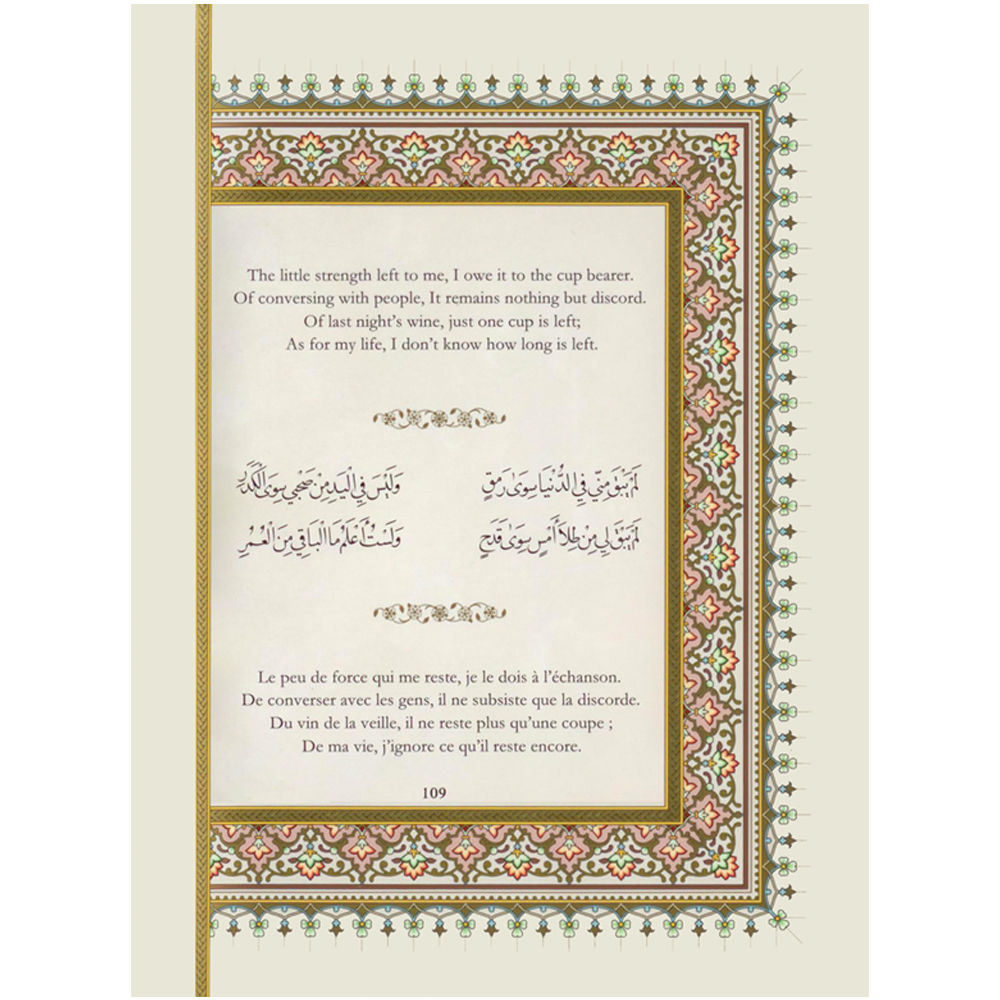 The little strength left to me, I owe it to the cup bearer.
Of conversing with people, It remains nothing but discord.
Of last night's wine, just one cup is left;
As for my life, I don't know how long is left.
لَمْ يَبْقَ مِنِّي فِي الدُّنْيَا سِوَى رَمَقٍ وَلَيْسَ فِي الْيَدِ مِنْ صَحْبِي سِوَى الْكَدَرِ
لَمْ يَبْقَ لِي مِنْ طِلَا أَمْسٍ سِوَى قَدَحٍ وَلَسْتُ أَعْلَمُ مَا الْبَاقِي مِنَ الْعُمُرِ
Le peu de force qui me reste, je le dois à l'échanson.
De converser avec les gens, il ne subsiste que la discorde.
Du vin de la veille, il ne reste plus qu'une coupe ;
De ma vie, j'ignore ce qu'il reste encore.
109